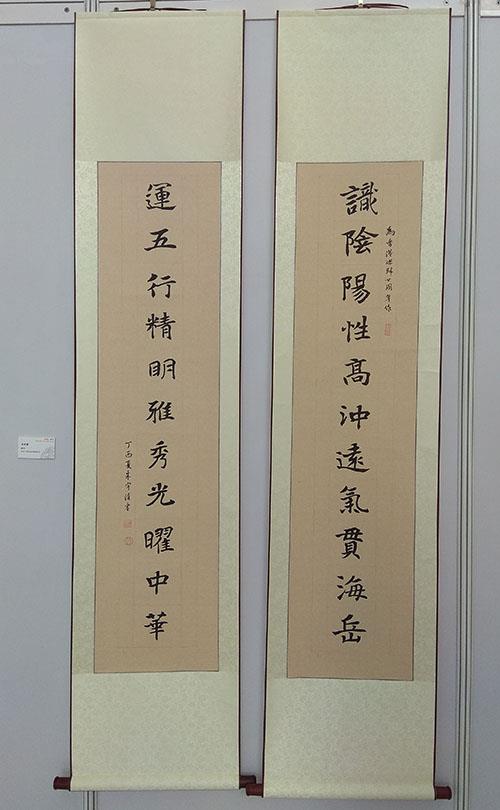 識陰陽性髙沖遠氣貫海岳
為香港回歸廿周年作
運五行精明雅秀光曜中華
丁酉夏